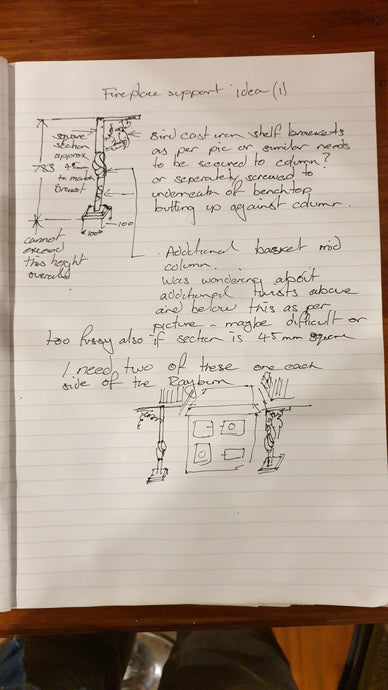 Fireplace support idea (1)
square
section
approx
45mm
to match
breast
783
100
100
cannot
exceed
this height
overall
Bird cast iron shelf brackets
as per pic or similar needs
to be secured to column?
or seperately screwed to
underneath of benchtop
butting up against column.
Additional basket mid
column.
Was wondering about
additional twists above
and below this as per
picture - maybe difficult or
too fussy also if section is 45mm square
I need two of these one each
side of the Rayburn